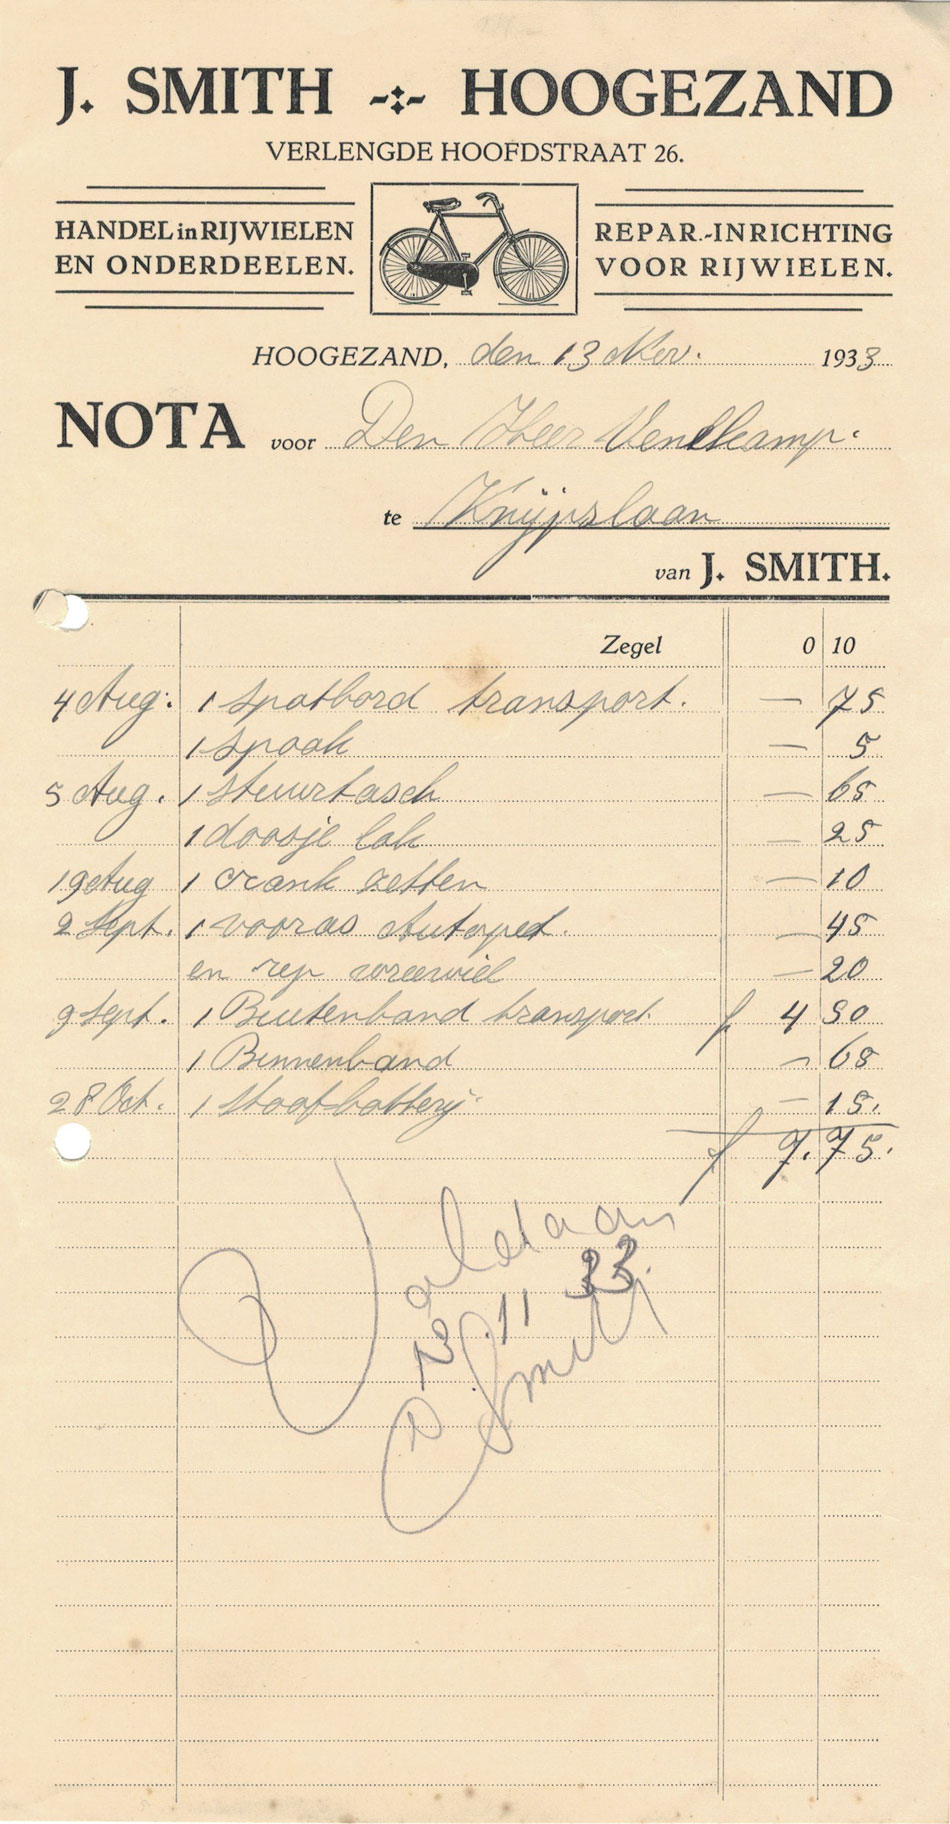 J. SMITH -:- HOOGEZAND
VERLENGDE HOOFDSTRAAT 26.
HANDEL in RIJWIELEN
EN ONDERDEELEN.
REPAR.-INRICHTING
VOOR RIJWIELEN.
HOOGEZAND, den 13 Nov. 1933
NOTA voor Den Heer Venekamp.
te Knijpslaan
van J. SMITH.
Zegel 0 10
4 Aug. 1 Spatbord transport. — 75
1 Spaak — 5
5 Aug. 1 Stuurtasch — 65
1 doosje lak — 25
19 Aug 1 crank zetten — 10
2 Sept. 1 vooras Autoped. — 45
en rep vreewiel — 20
9 Sept. 1 Buitenband transport f 4 50
1 Binnenband — 65
28 Oct. 1 Staafbatterij — 15.
f 7.75.
Voldaan
11 33.
Smith